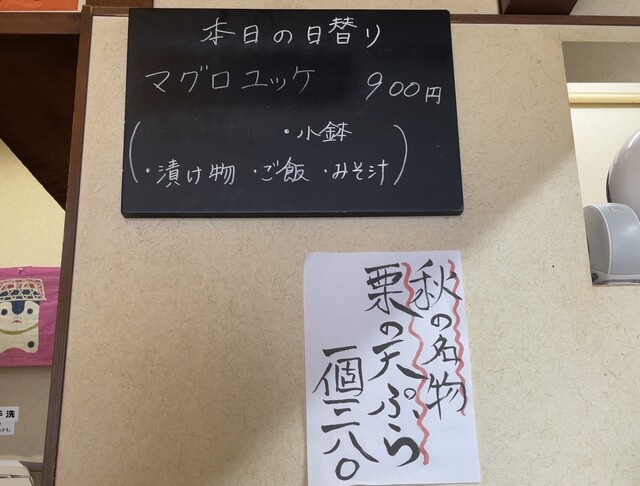 本日の日替り
マグロユッケ 900円
(・小鉢
・漬け物・ご飯・みそ汁)
秋の名物
栗の天ぷら
一個三八〇
手洗